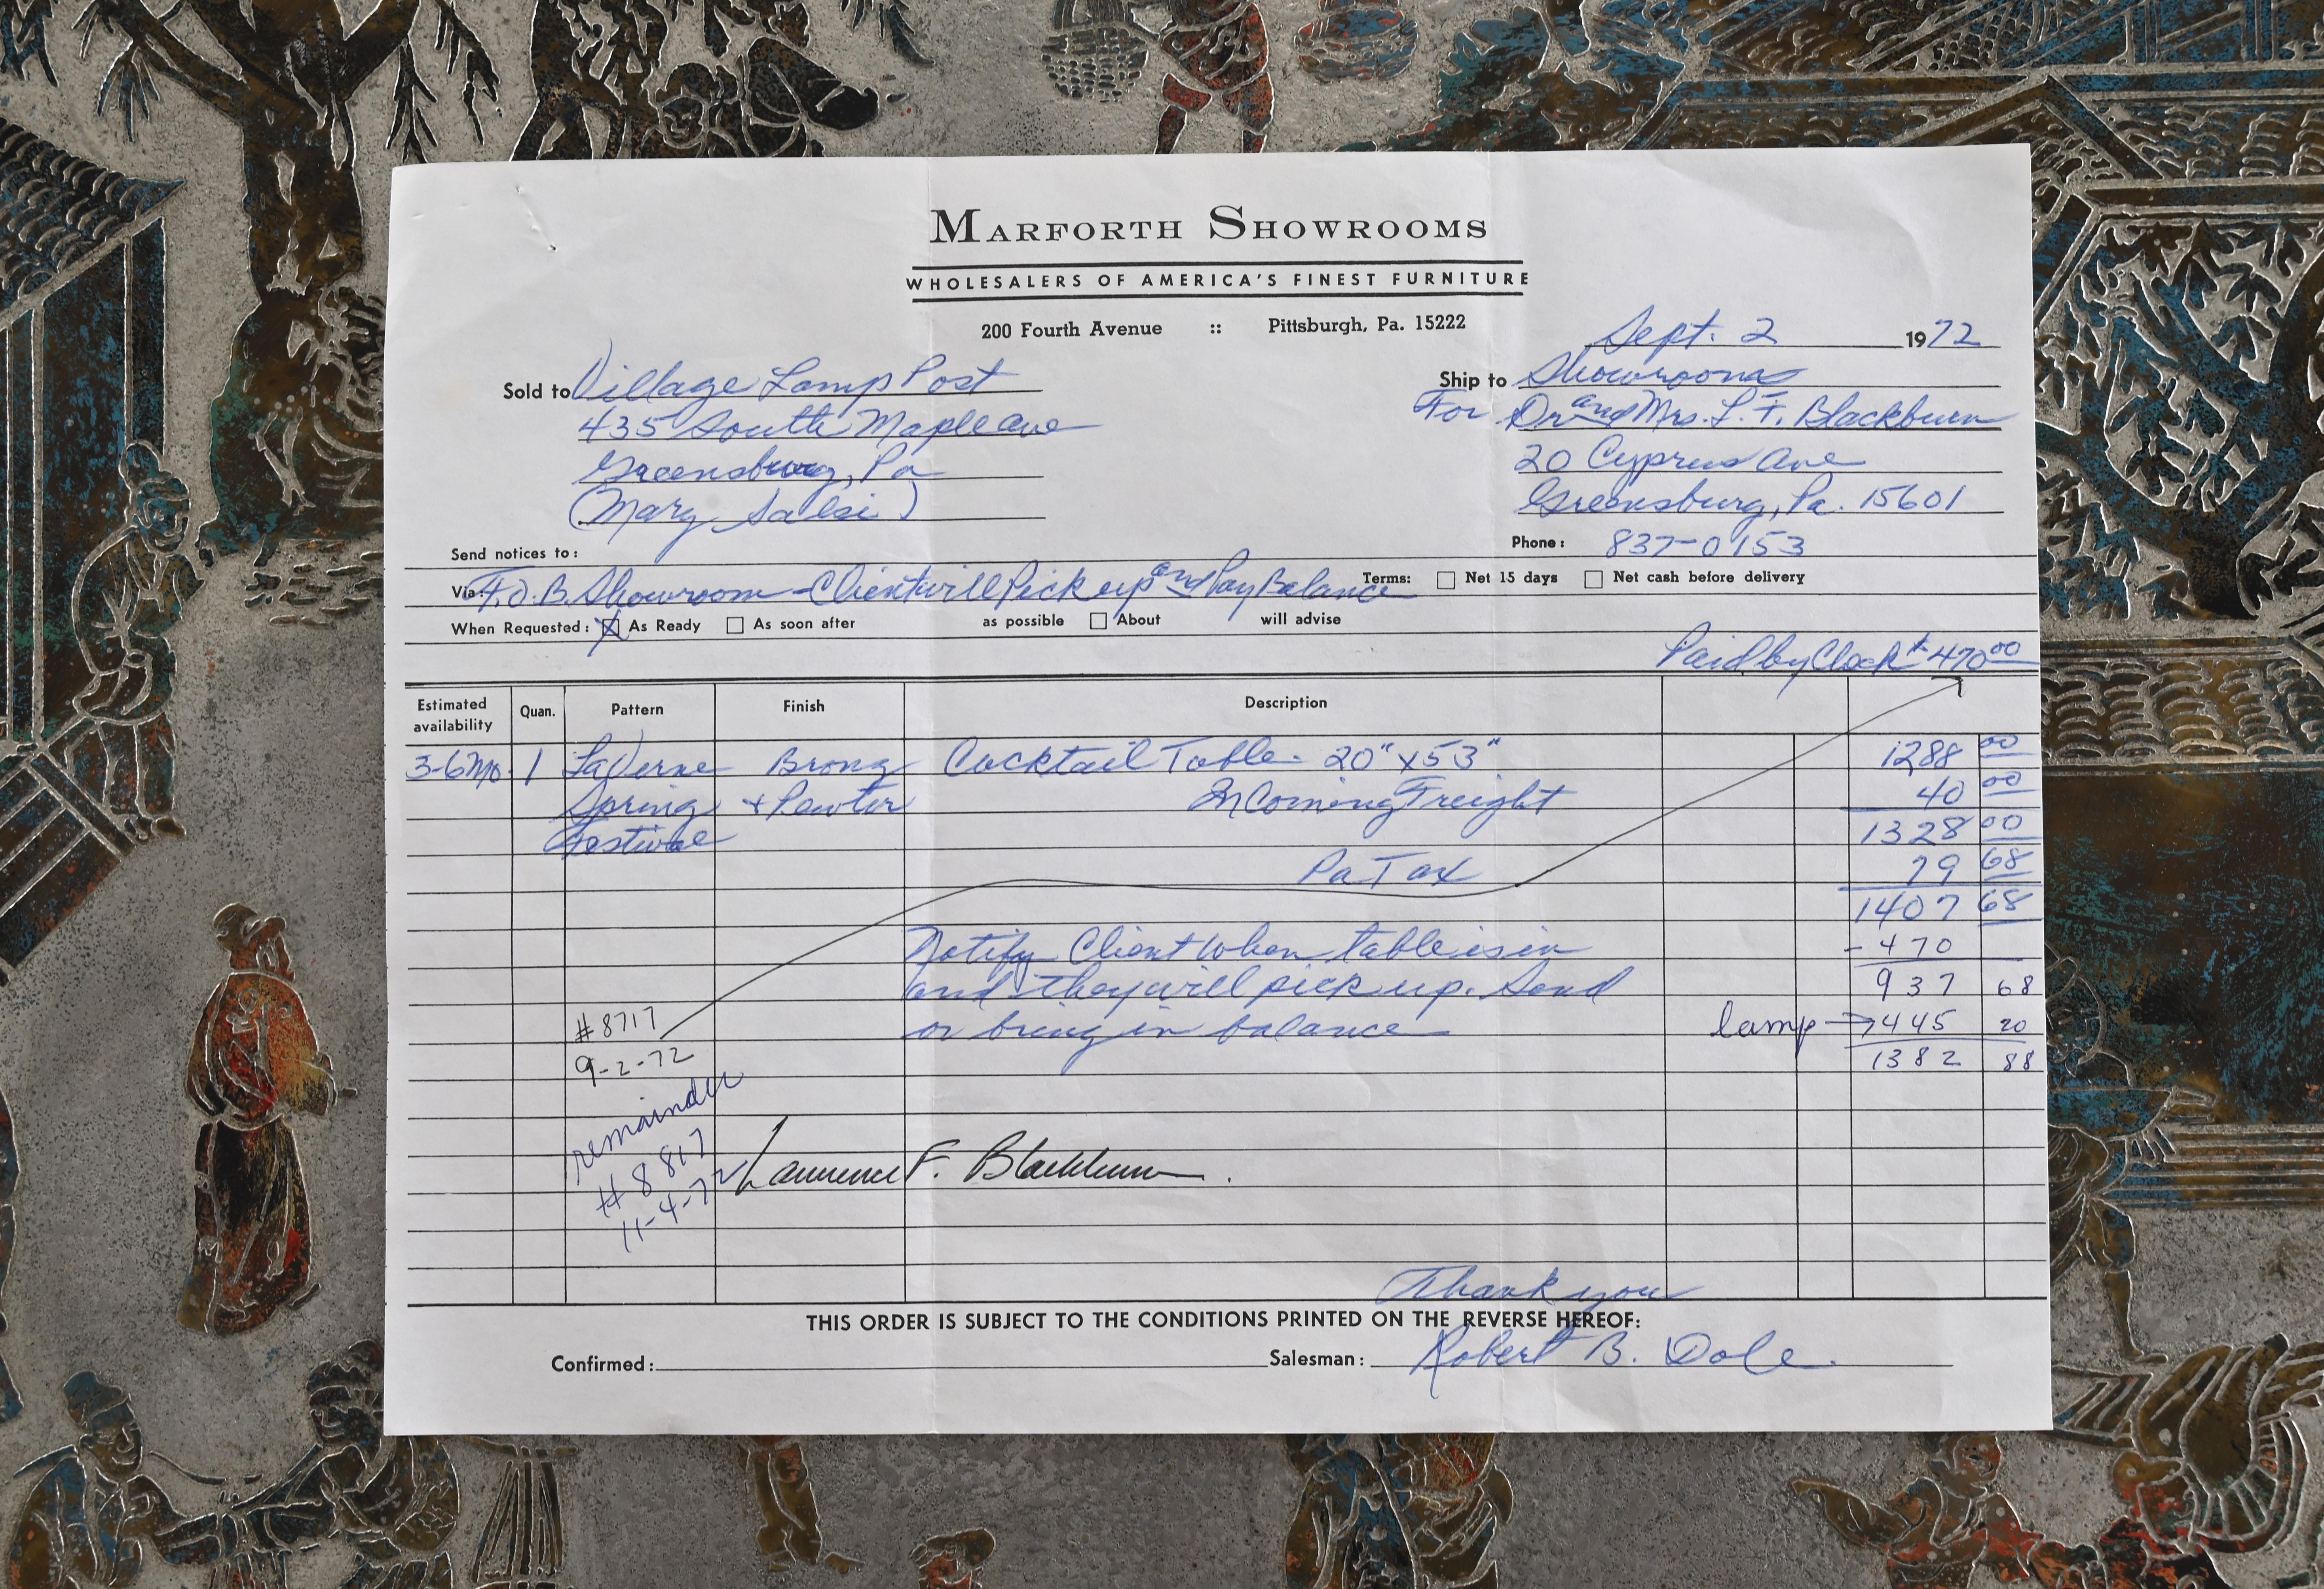 MARFORTH SHOWROOMS
WHOLESALERS OF AMERICA'S FINEST FURNITURE
200 Fourth Avenue :: Pittsburgh, Pa. 15222
Sept. 2 1972
Sold to Village Lamp Post
435 South Maple Ave
Greensburg, Pa
(Mary Salsi)
Ship to Showrooms
For Dr and Mrs. L. F. Blackburn
20 Cyprus Ave
Greensburg, Pa. 15601
Send notices to:
Phone: 837-0153
Via: F.O.B. Showroom - Client will Pick up and Pay Balance Terms: Net 15 days Net cash before delivery
When Requested: X As Ready As soon after as possible About will advise
Paid by Check * 470 00
Estimated availability Quan. Pattern Finish Description
3-6 Mo. 1 LaVerne Bronz Cocktail Table - 20" x 53" 1288 00
Spring + Pewter InComing Freight 40 00
Festival 1328 00
Pa Tax 79 68
1407 68
Notify Client when table is in - 470
and they will pick up. Send 937 68
or bring in balance lamp → 445 20
1382 88
#8717
9-2-72
remainder
#8817
11-4-72
Lawrence F. Blackburn.
Thank you
THIS ORDER IS SUBJECT TO THE CONDITIONS PRINTED ON THE REVERSE HEREOF:
Confirmed: Salesman: Robert B. Dole.